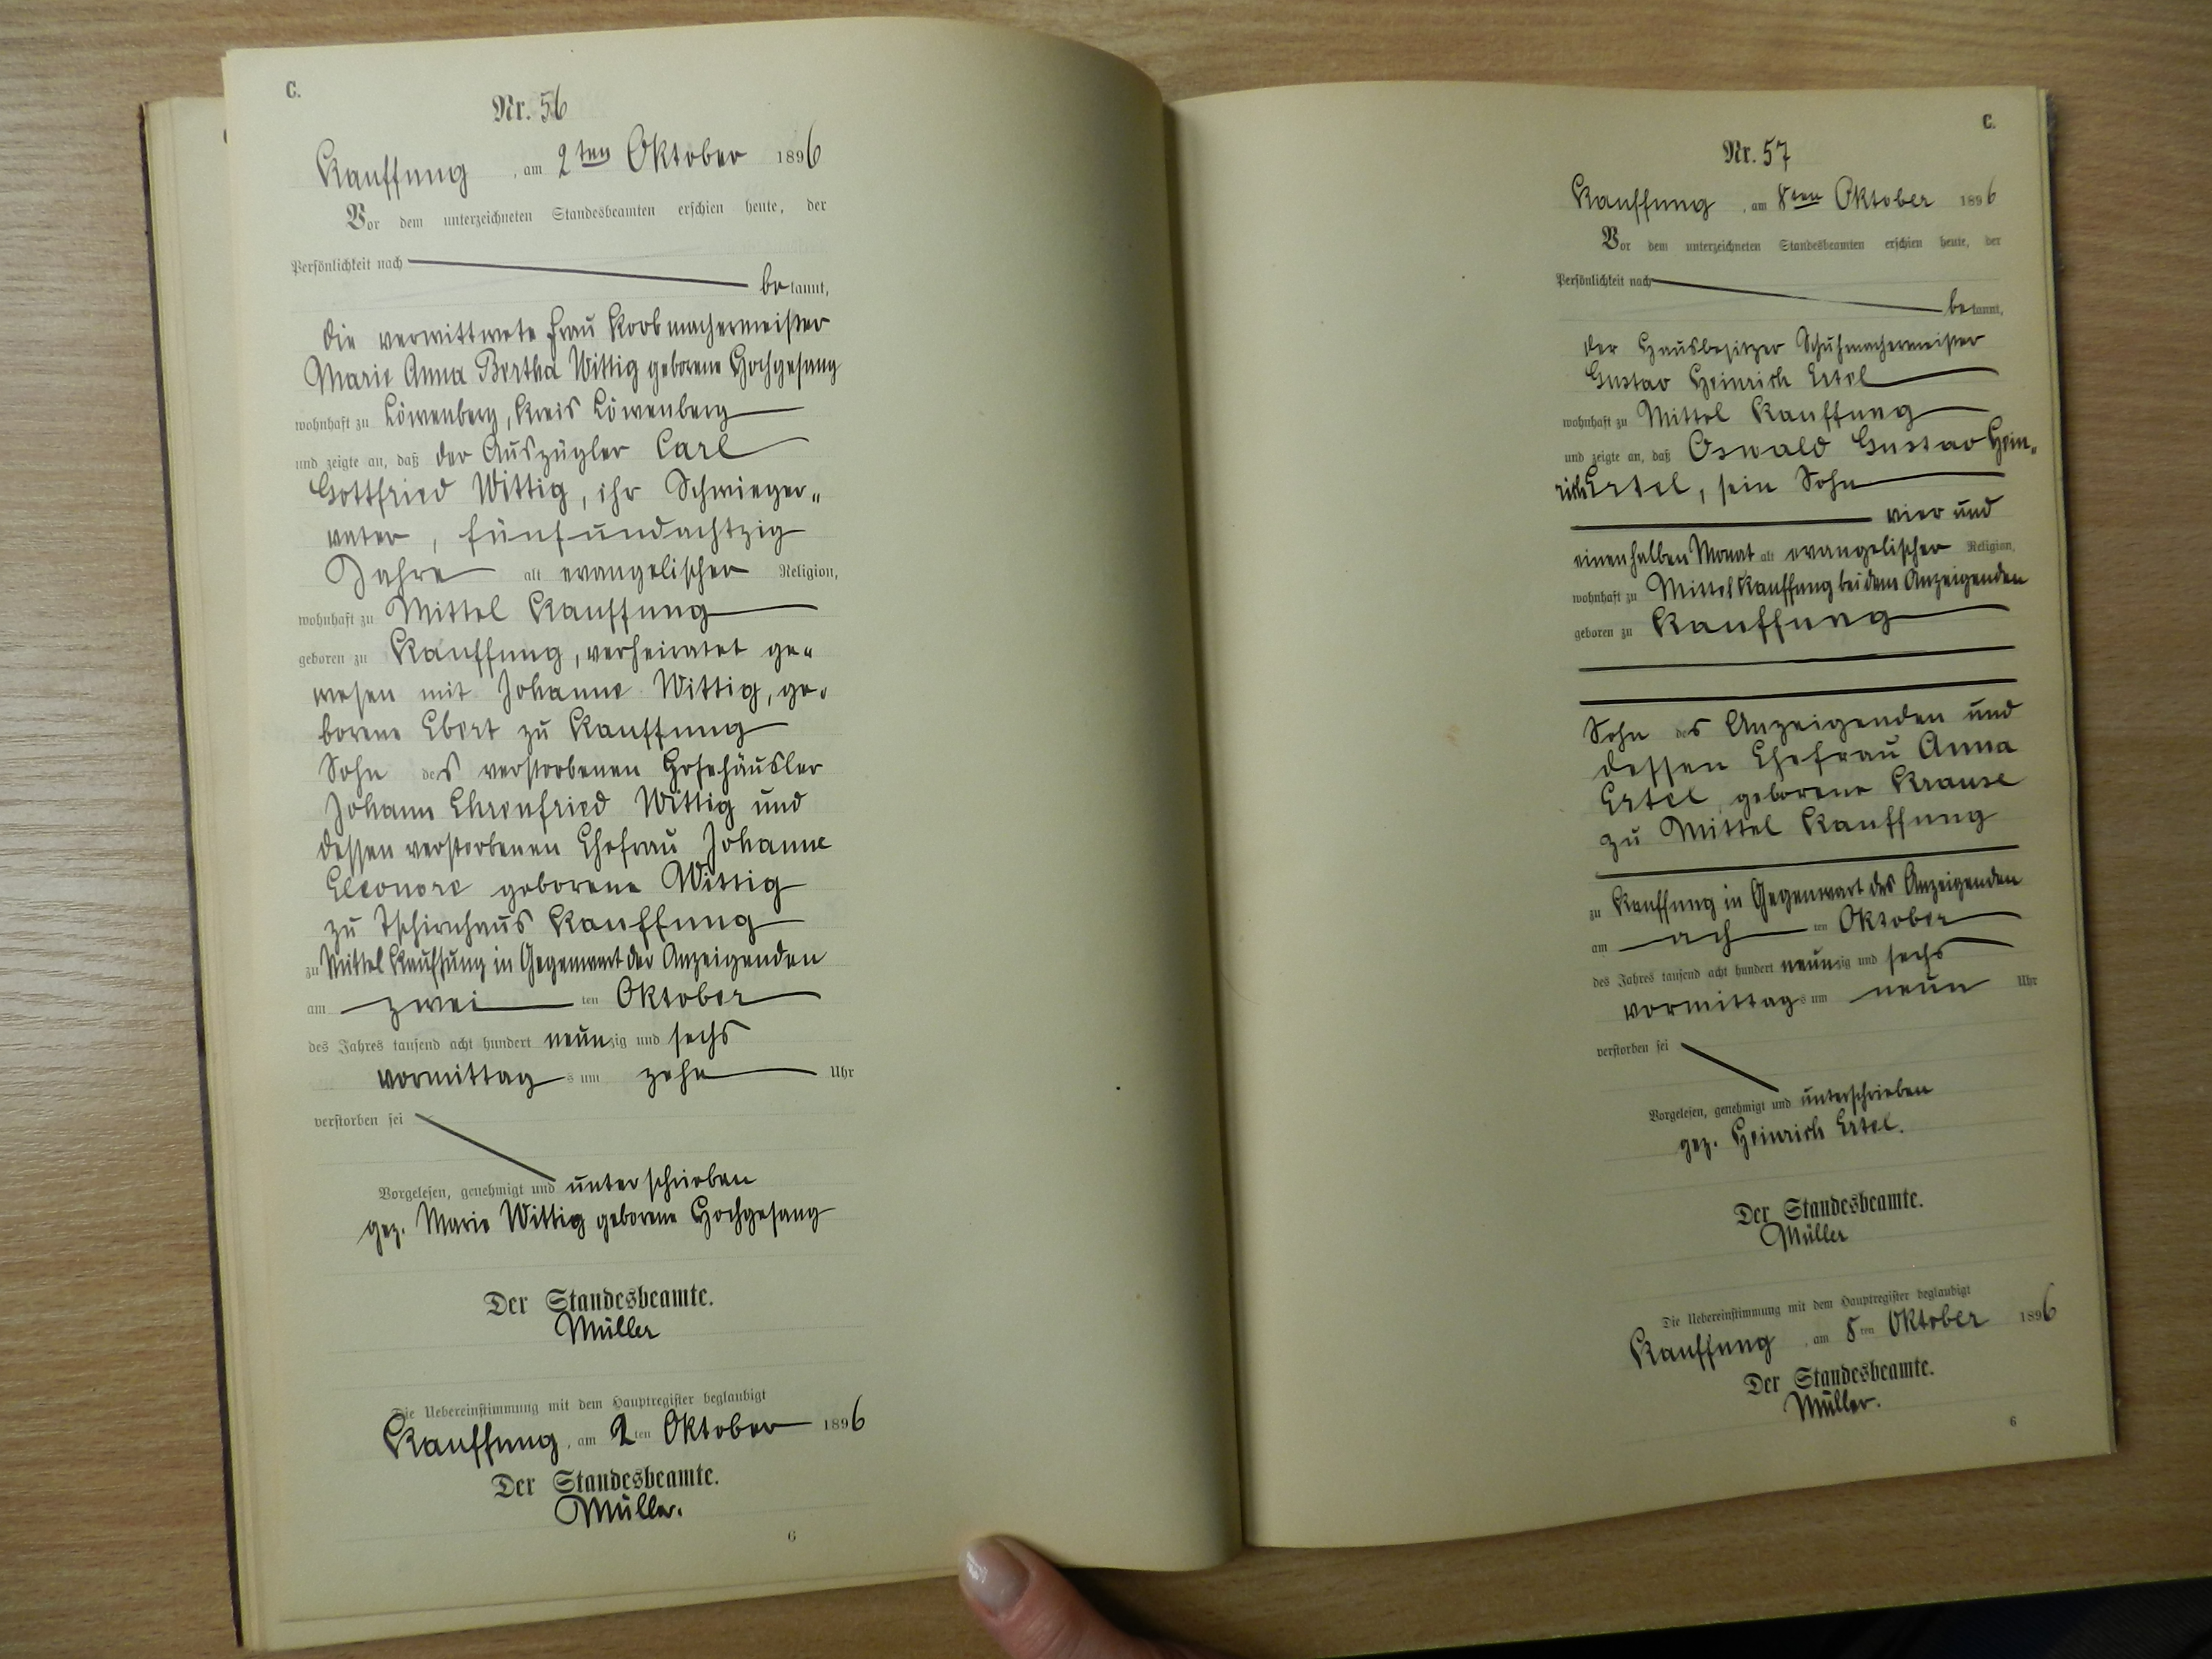 C.
Nr. 56
Kauffung, am 2ten Oktober 1896
Vor dem unterzeichneten Standesbeamten erschien heute, der
Persönlichkeit nach
bekannt,
die verwittwete Frau Korbmachermeister
Marie Anna Bertha Wittig geborene Hochgesang
wohnhaft zu Löwenberg, Kreis Löwenberg
und zeigte an, daß der Auszügler Carl
Gottfried Wittig, ihr Schwieger„
vater, fünfundachtzig
Jahre alt evangelischer Religion,
wohnhaft zu Mittel Kauffung
geboren zu Kauffung, verheiratet ge„
wesen mit Johanne Wittig, ge„
borene Ebert zu Kauffung
Sohn des verstorbenen Hofehäusler
Johann Ehrenfried Wittig und
dessen verstorbenen Ehefrau Johanne
Eleonore geborene Wittig
zu Tschirnhaus Kauffung
zu Mittel Kauffung in Gegenwart der Anzeigenden
am zwei ten Oktober
des Jahres tausend acht hundert neunzig und sechs
vormittags um zehn Uhr
verstorben sei
Vorgelesen, genehmigt und unterschrieben
gez. Marie Wittig geborene Hochgesang
Der Standesbeamte.
Müller
Die Uebereinstimmung mit dem Hauptregister beglaubigt
Kauffung, am 2ten Oktober 1896
Der Standesbeamte.
Müller.
6
C.
Nr. 57
Kauffung, am 8ten Oktober 1896
Vor dem unterzeichneten Standesbeamten erschien heute, der
Persönlichkeit nach
bekannt,
der Hausbesitzer Schuhmachermeister
Gustav Heinrich Ertel
wohnhaft zu Mittel Kauffung
und zeigte an, daß Oswald Gustav Hein„
rich Ertel, sein Sohn
vier und
einenhalben Monat alt evangelischer Religion,
wohnhaft zu Mittel Kauffung bei dem Anzeigenden
geboren zu Kauffung
Sohn des Anzeigenden und
dessen Ehefrau Anna
Ertel geborene Krause
zu Mittel Kauffung
zu Kauffung in Gegenwart des Anzeigenden
am ach ten Oktober
des Jahres tausend acht hundert neunzig und sechs
vormittags um neun Uhr
verstorben sei
Vorgelesen, genehmigt und unterschrieben
gez. Heinrich Ertel.
Der Standesbeamte.
Müller
Die Uebereinstimmung mit dem Hauptregister beglaubigt
Kauffung, am 8ten Oktober 1896
Der Standesbeamte.
Müller.
6